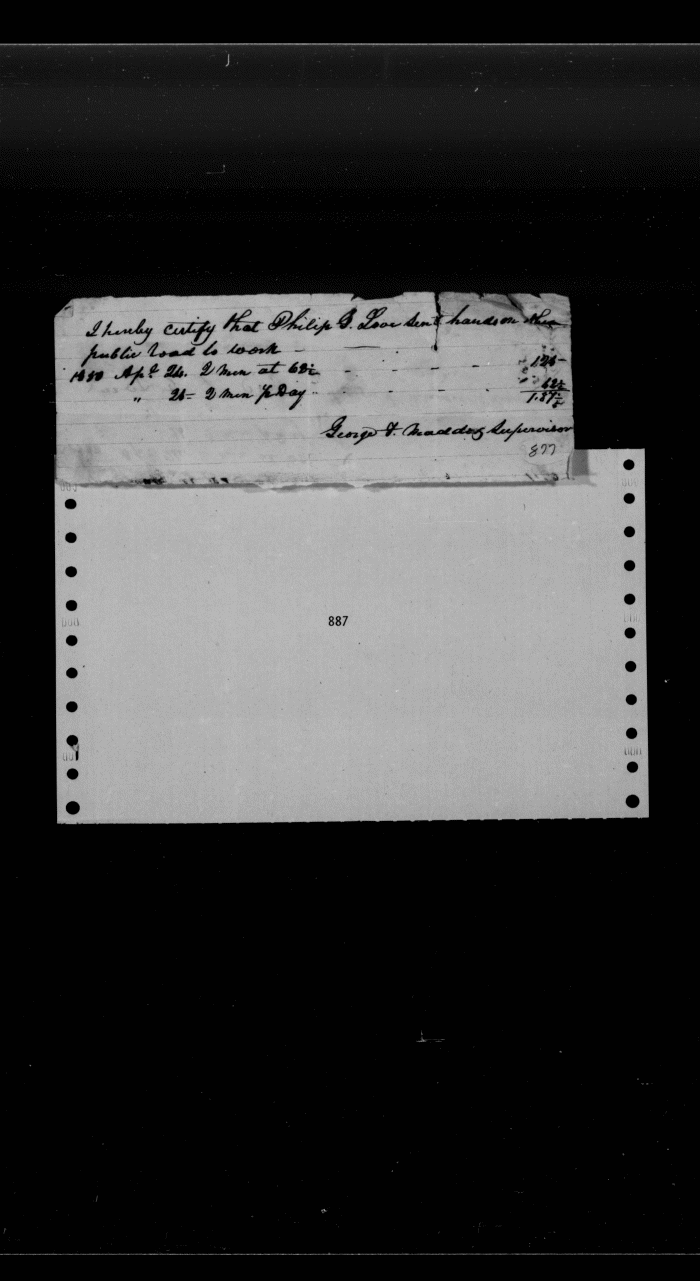 I hereby certify that Philip G. Love sent hands on the
public road to work
1850 Apl 24. 2 men at 62½ 1.25
" 25 - 2 men ½ Day 62½
1.87½
George F. Maddox Supervisor
877
887